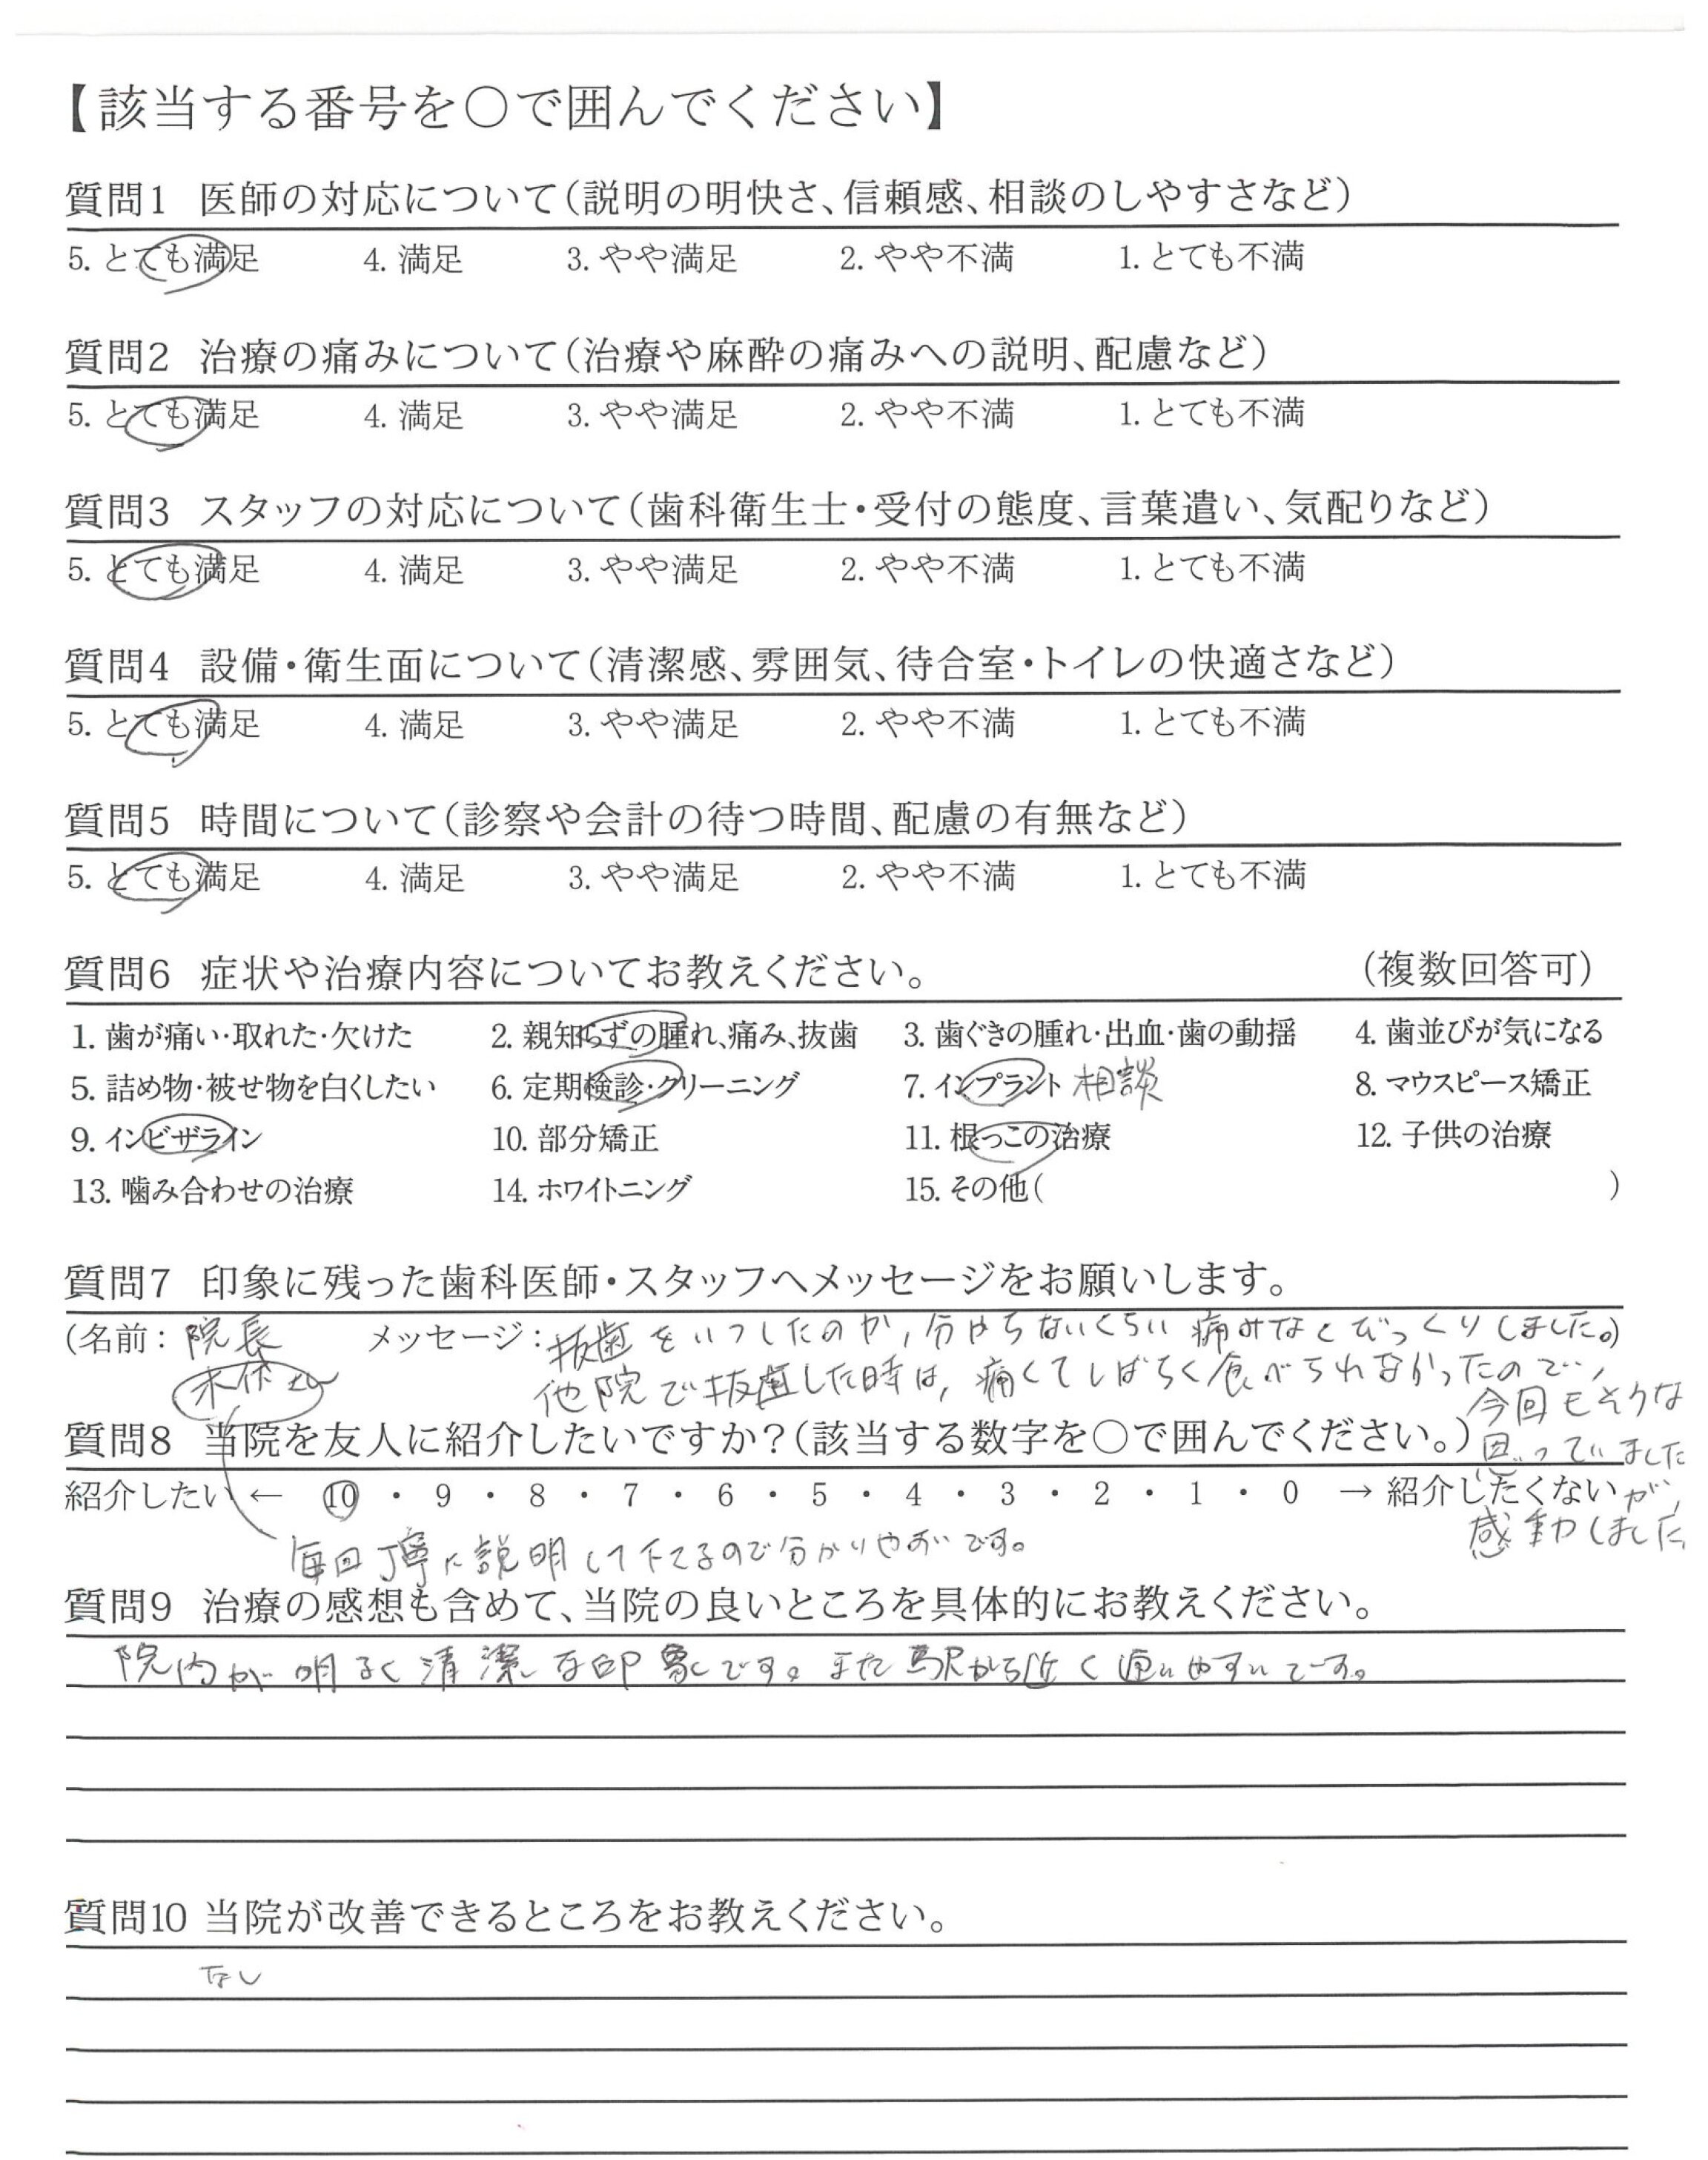 【該当する番号を○で囲んでください】
質問1 医師の対応について(説明の明快さ、信頼感、相談のしやすさなど)
5. とても満足 4. 満足 3. やや満足 2. やや不満 1. とても不満
質問2 治療の痛みについて(治療や麻酔の痛みへの説明、配慮など)
5. とても満足 4. 満足 3. やや満足 2. やや不満 1. とても不満
質問3 スタッフの対応について(歯科衛生士・受付の態度、言葉遣い、気配りなど)
5. とても満足 4. 満足 3. やや満足 2. やや不満 1. とても不満
質問4 設備・衛生面について(清潔感、雰囲気、待合室・トイレの快適さなど)
5. とても満足 4. 満足 3. やや満足 2. やや不満 1. とても不満
質問5 時間について(診察や会計の待つ時間、配慮の有無など)
5. とても満足 4. 満足 3. やや満足 2. やや不満 1. とても不満
質問6 症状や治療内容についてお教えください。 (複数回答可)
1. 歯が痛い・取れた・欠けた 2. 親知らずの腫れ、痛み、抜歯 3. 歯ぐきの腫れ・出血・歯の動揺 4. 歯並びが気になる
5. 詰め物・被せ物を白くしたい 6. 定期検診・クリーニング 7. インプラント 相談 8. マウスピース矯正
9. インビザライン 10. 部分矯正 11. 根っこの治療 12. 子供の治療
13. 噛み合わせの治療 14. ホワイトニング 15. その他( )
質問7 印象に残った歯科医師・スタッフへメッセージをお願いします。
(名前: 院長 メッセージ: 抜歯をいつしたのか, 分からないくらい 痛みなくびっくりしました。)
他院で抜歯した時は, 痛くてしばらく食べられなかったので,
今回もそうな
思っていました
が,
感動しました
質問8 当院を友人に紹介したいですか?(該当する数字を○で囲んでください。)
紹介したい ← 10 ・ 9 ・ 8 ・ 7 ・ 6 ・ 5 ・ 4 ・ 3 ・ 2 ・ 1 ・ 0 → 紹介したくない
毎回丁寧に説明して下さるので分かりやすいです。
質問9 治療の感想も含めて、当院の良いところを具体的にお教えください。
院内が明るく清潔な印象です。また駅から近く通いやすいです。
質問10 当院が改善できるところをお教えください。
なし